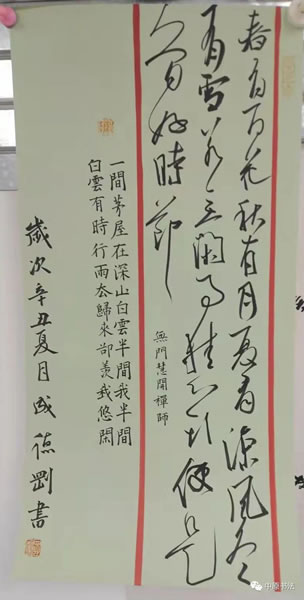 春有百花秋有月夏有涼風冬
有雪若无闲事挂心头便是
人間好時節
無門慧開禪師
一間茅屋在深山白雲半間我半間
白雲有時行雨去歸來卻羨我悠閑
歲次辛丑夏月成德剛書